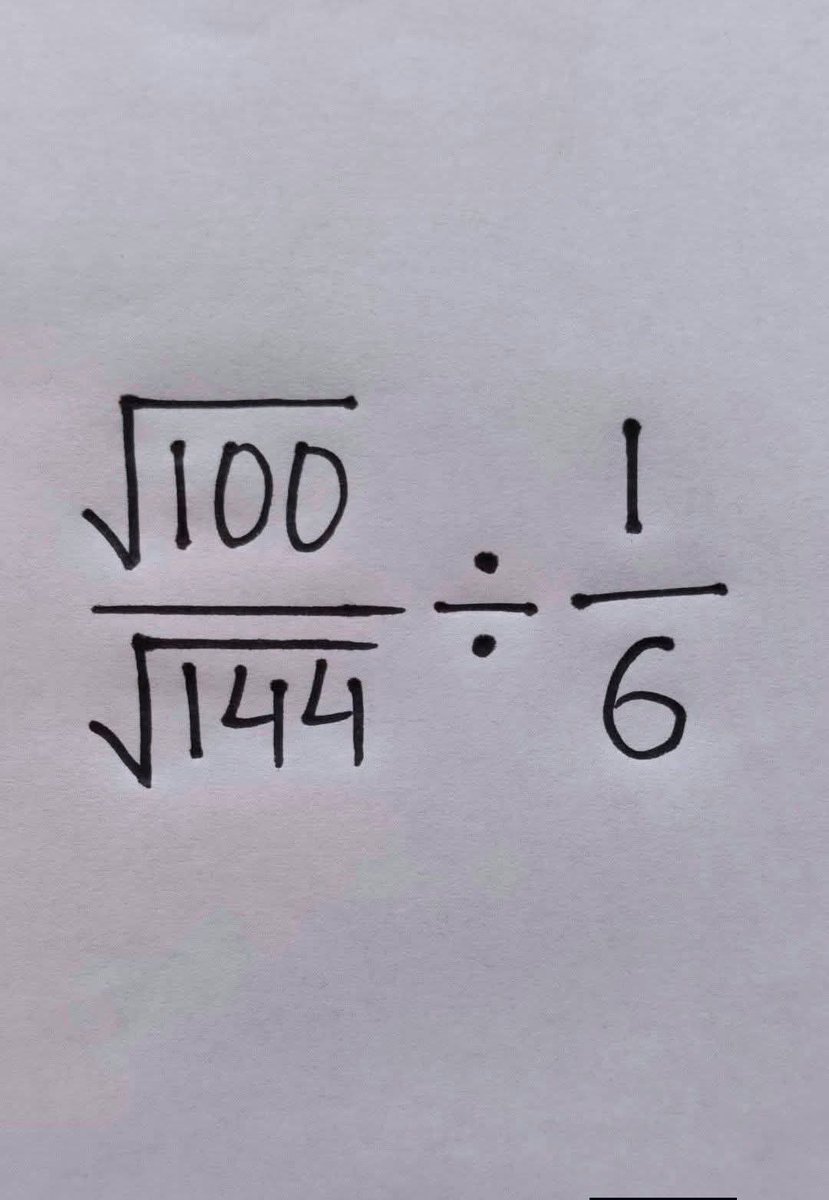 √100/√144 ÷ 1/6